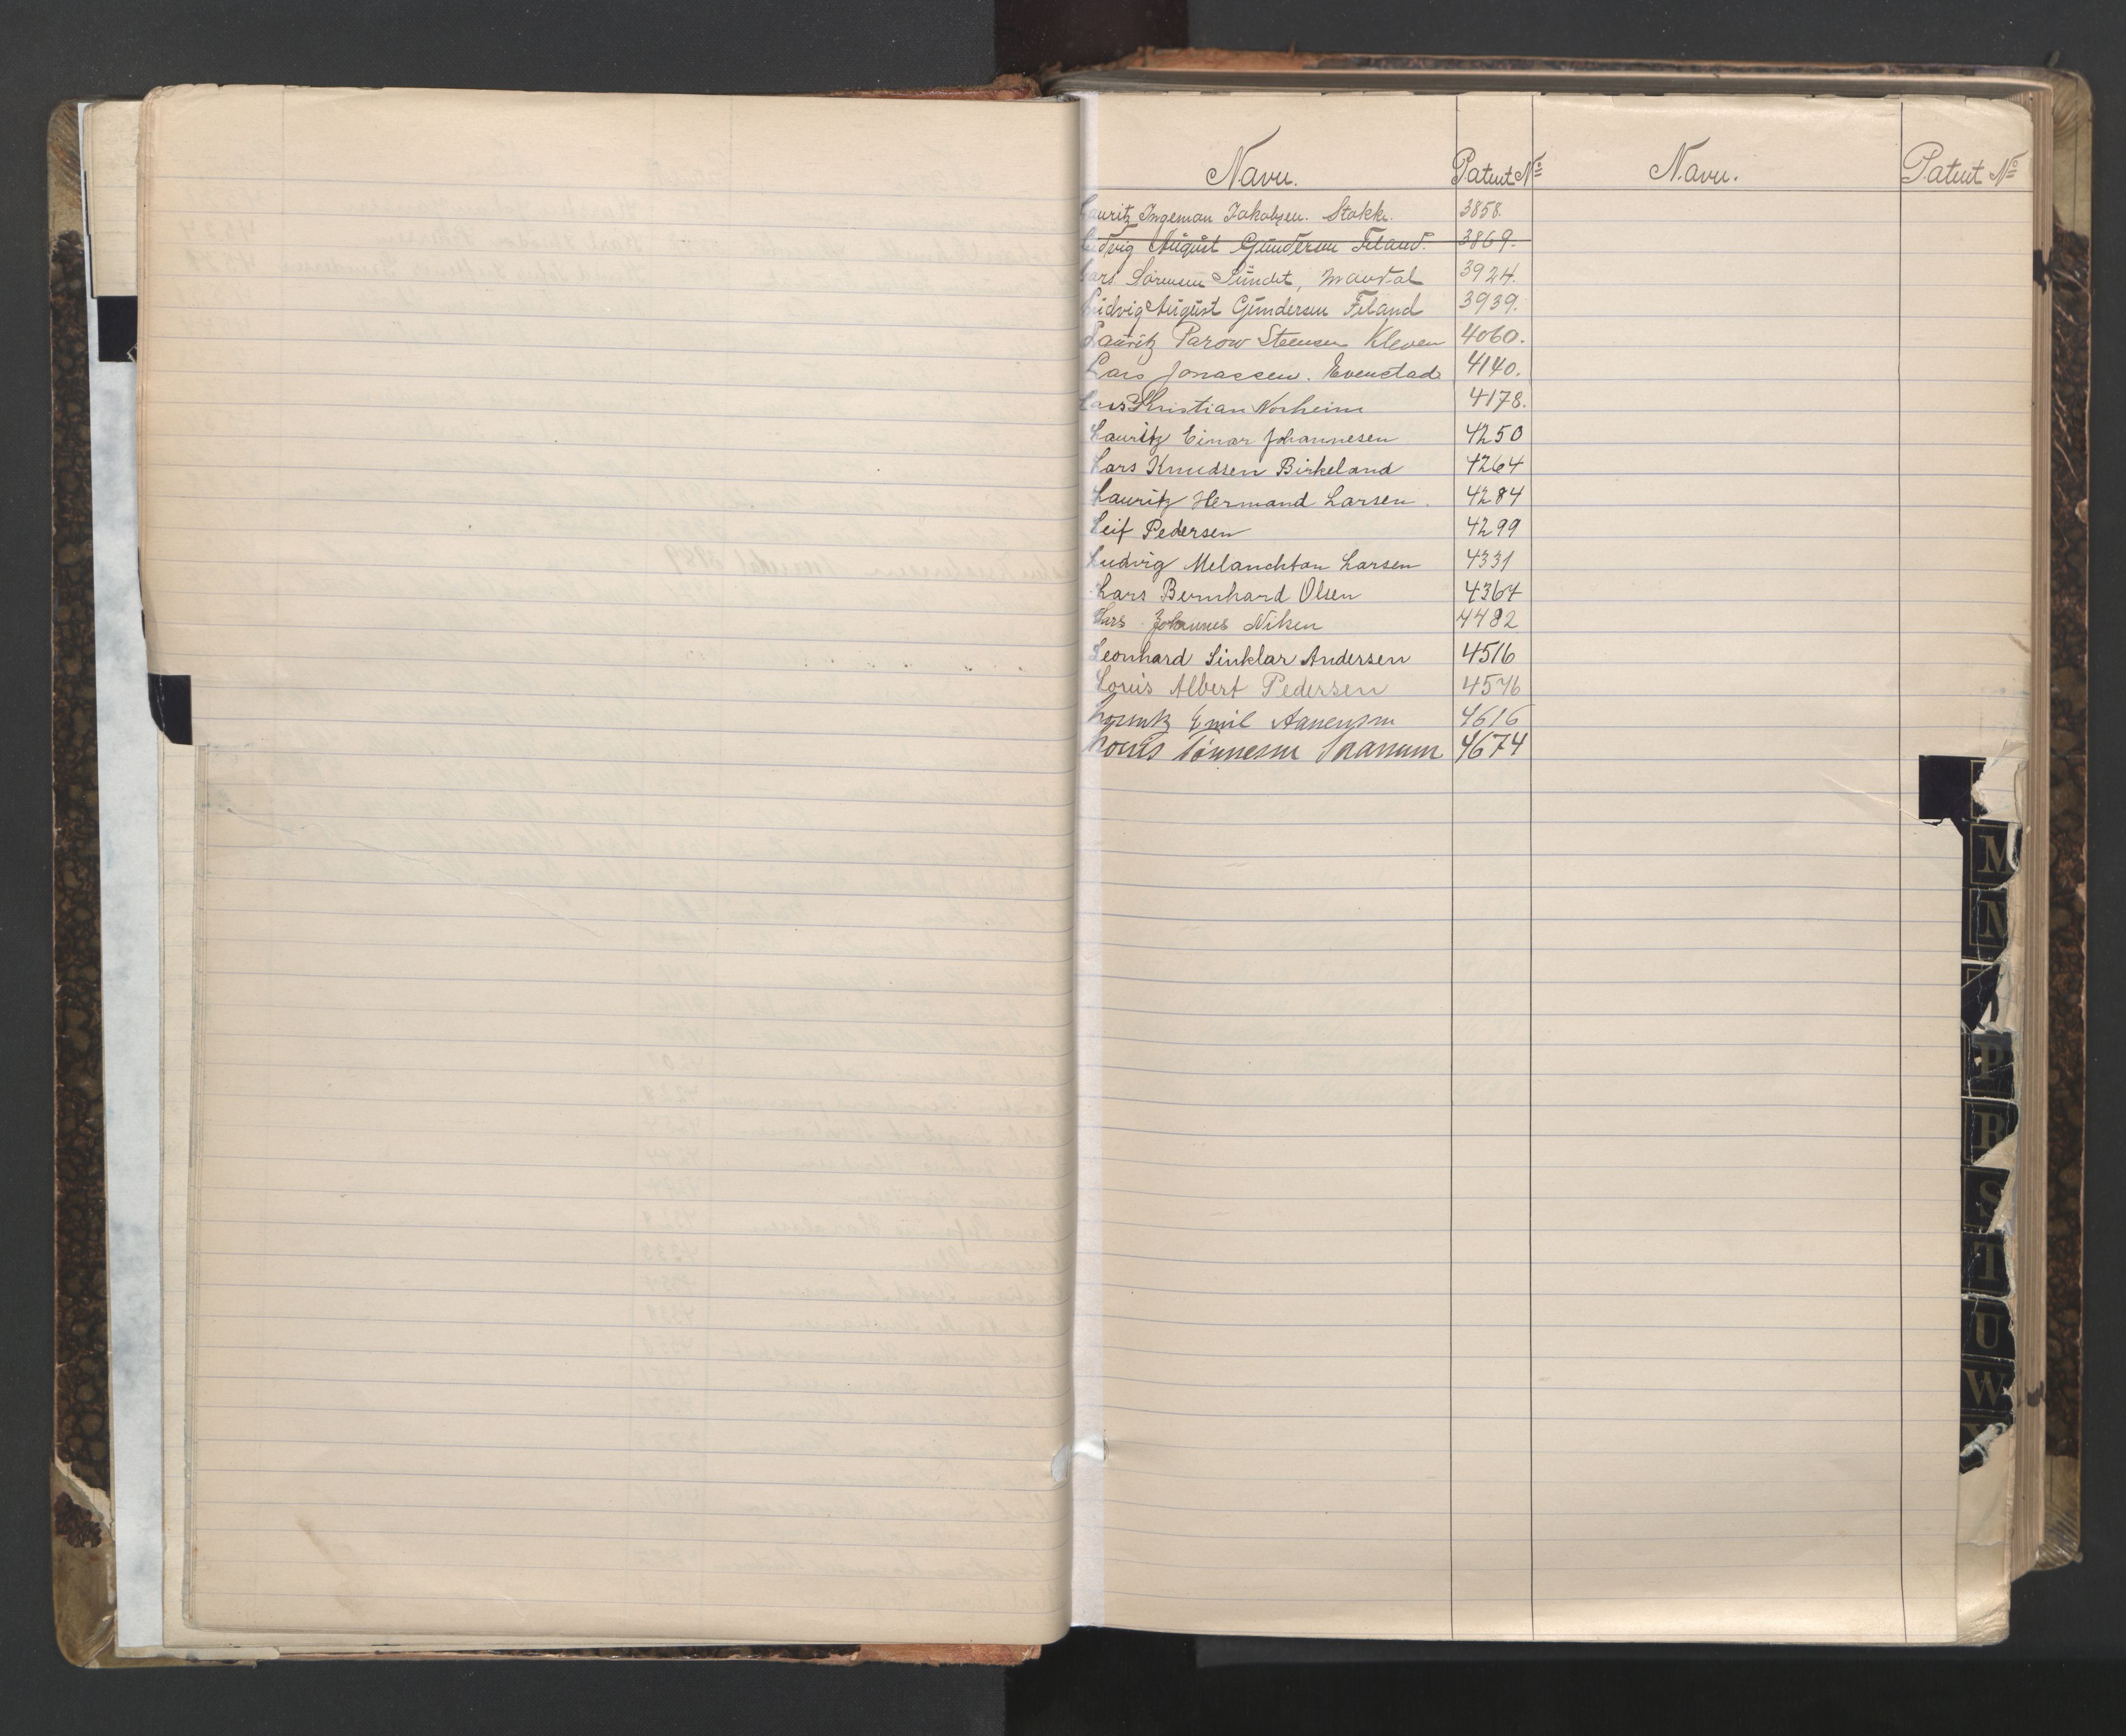 Navn. Patent No Navn. Patent No
Lauritz Ingeman Jakobsen. Stokke. 3858.
Ludvig August Gundersen Feland. 3869.
Lars Sørensen Sundet, Mandal 3924.
Ludvig August Gundersen Feland 3939.
Lauritz Parow Steensen Kleven 4060.
Lars Jonassen. Evenstad. 4140.
Lars Kristian Norheim 4178.
Lauritz Einar Johannesen 4250
Lars Knudsen Birkeland 4264
Lauritz Hermand Larsen. 4284
Leif Pedersen 4299
Ludvig Melanchton Larsen 4331
Lars Bernhard Olsen 4364
Lars Johannes Niksen 4482
Leonhard Sinklar Andersen 4516
Louis Albert Pedersen 4546
Emil Aanensen 4616
Louis Tønnesen 4674
M
N
O
P
R
S
T
U
W